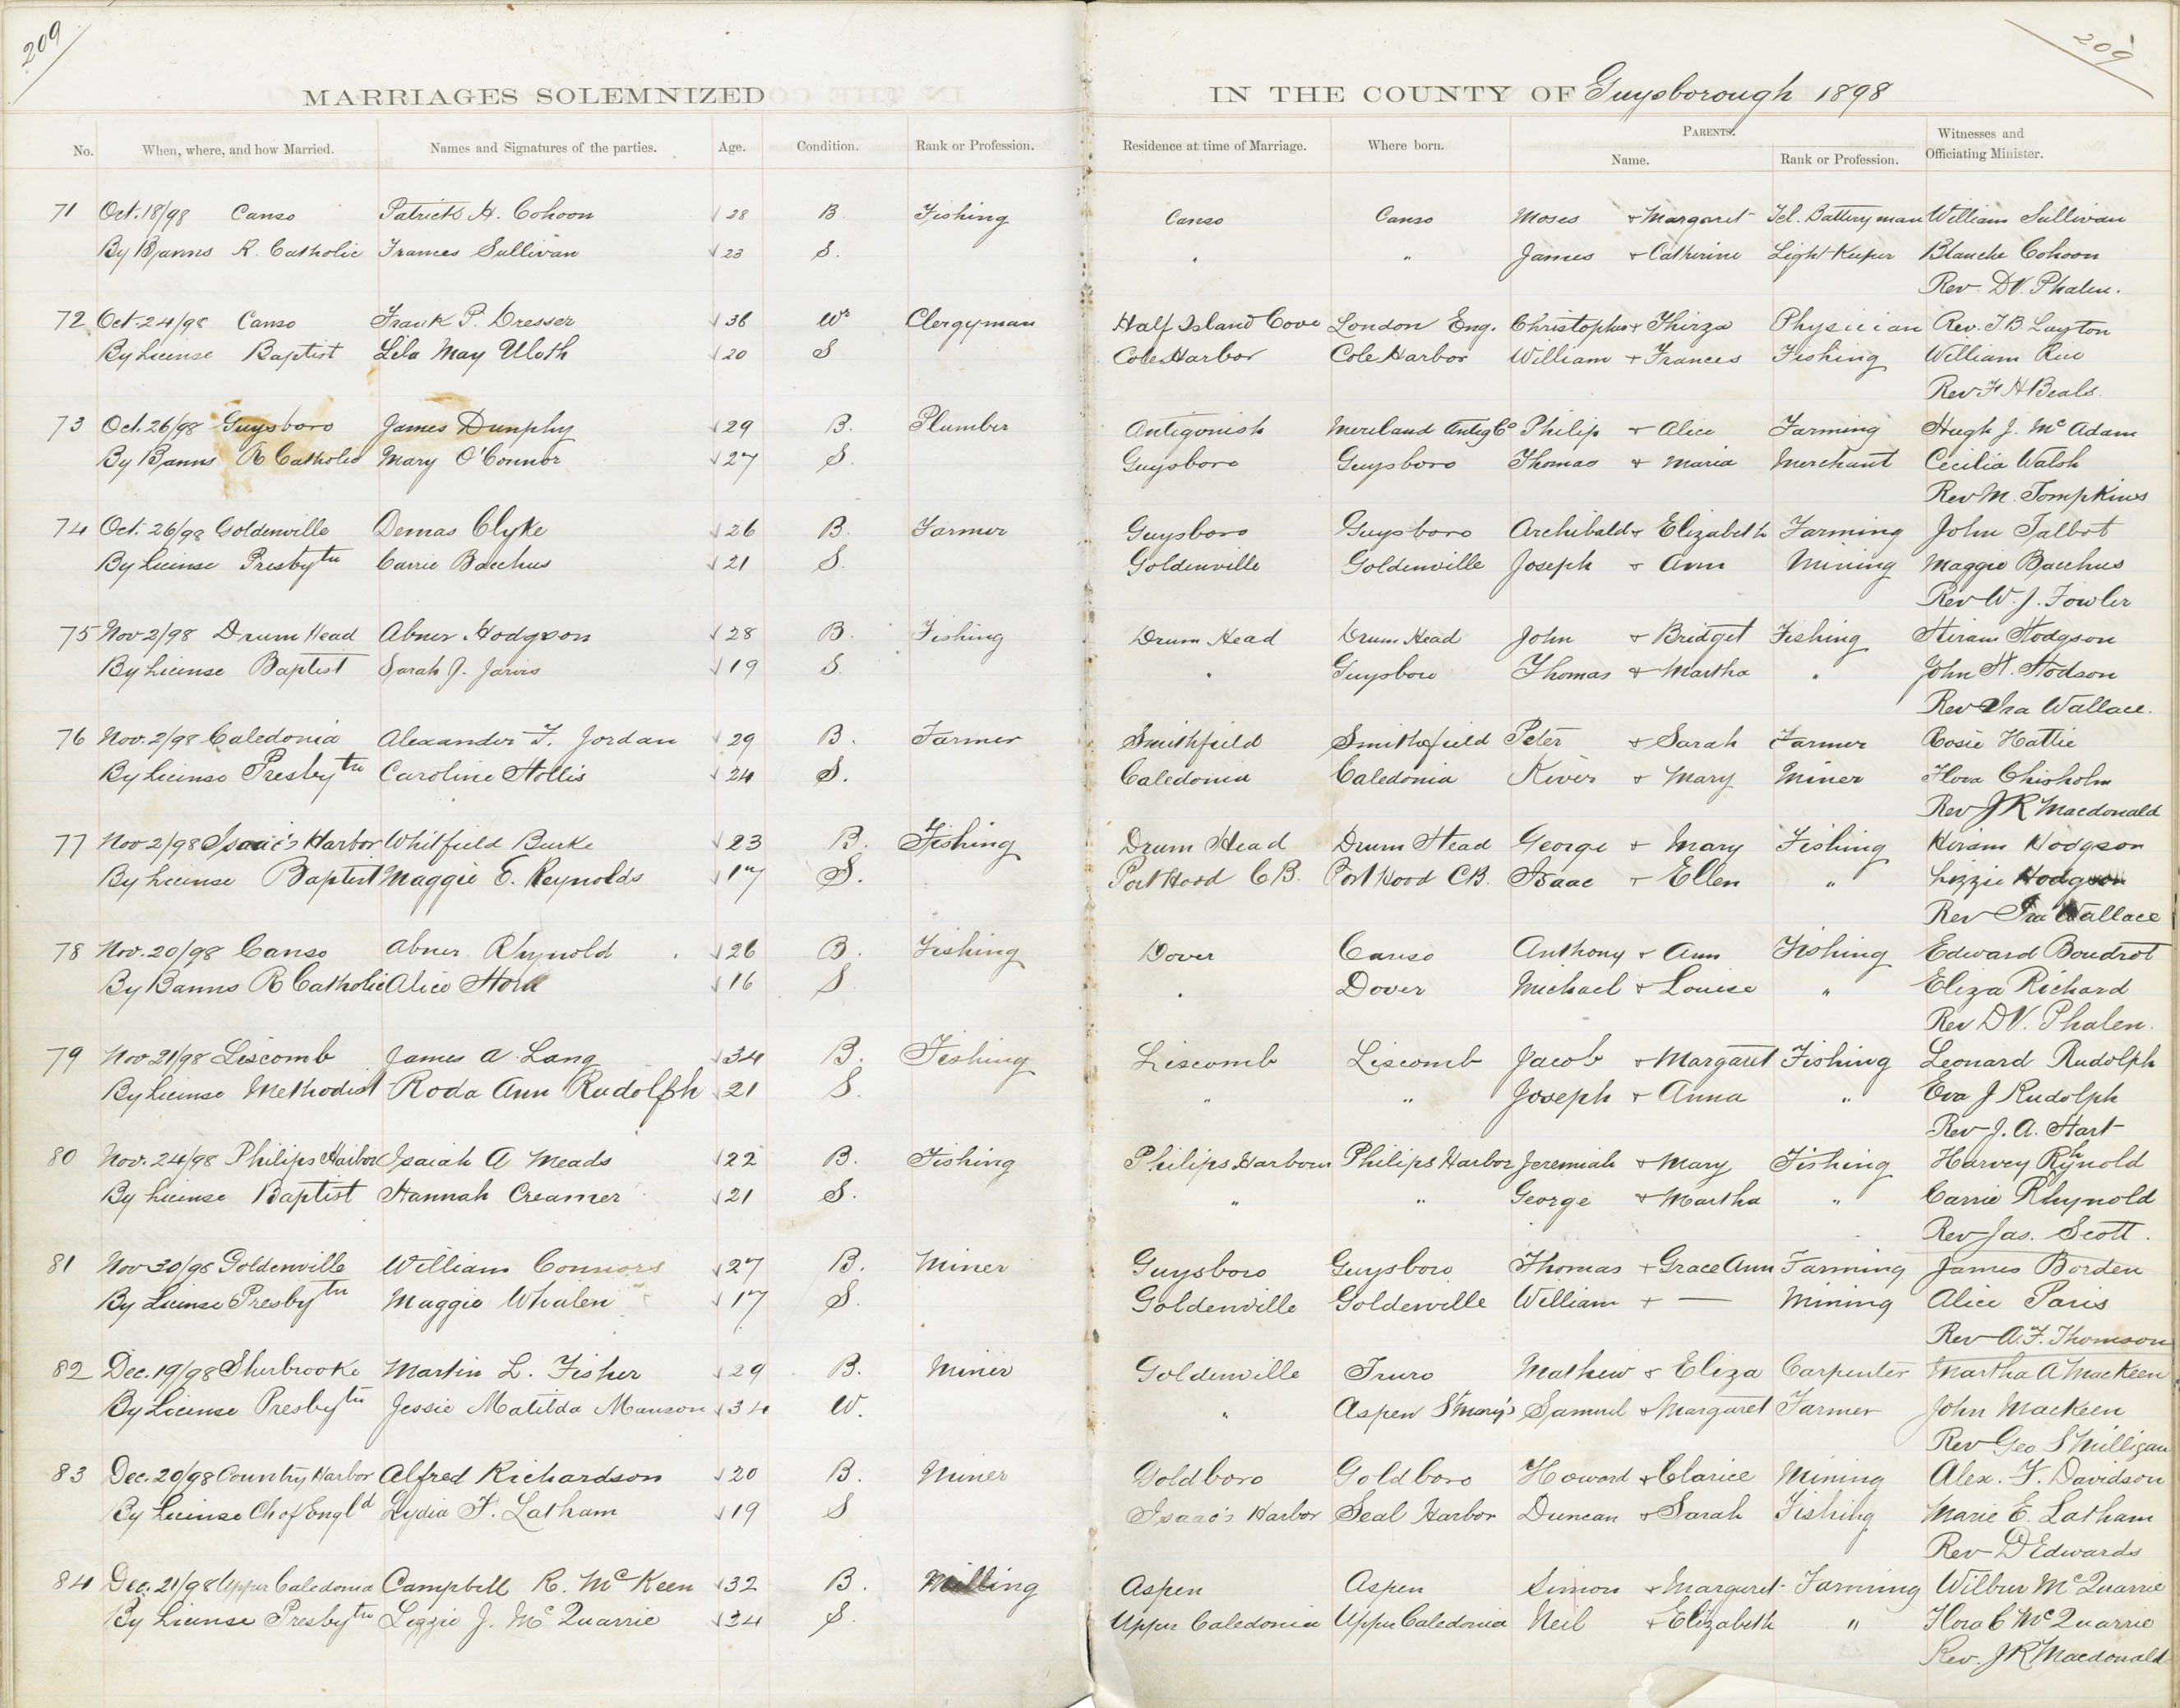 209
209
MARRIAGES SOLEMNIZED IN THE COUNTY OF Guysborough 1898
No. When, where, and how Married. Names and Signatures of the parties. Age. Condition. Rank or Profession. Residence at time of Marriage. Where born. PARENTS. Name. Rank or Profession. Witnesses and Officiating Minister.
71 Oct. 18/98 Canso Patrick H. Cohoon √28 B. Fishing Canso Canso Moses + Margaret Tel. Battery man William Sullivan
By Banns R. Catholic Frances Sullivan √23 S. " " James + Catherine Light Keeper Blanche Cohoon
Rev. D.V. Phalen.
72 Oct. 24/98 Canso Frank P. Dresser √36 Wr Clergyman Half Island Cove London Eng. Christopher + Thirza Physician Rev. T.B. Layton
By License Baptist Lila May Uloth √20 S Cole Harbor Cole Harbor William + Frances Fishing William Rice
Rev F H Beals.
73 Oct. 26/98 Guysboro James Dunphy √29 B. Plumber Antigonish Meriland Antig Co Philip + Alice Farming Hugh J. McAdam
By Banns R Catholic Mary O'Connor √27 S. Guysboro Guysboro Thomas + Maria Merchant Cecilia Walsh
Rev M. Tompkins
74 Oct. 26/98 Goldenville Demas Clyke √26 B. Farmer Guysboro Guysboro Archibald + Elizabeth Farming John Talbot
By License Presbytn Carrie Bacchus √21 S. Goldenville Goldenville Joseph + Ann Mining Maggie Bacchus
Rev W. J. Fowler
75 Nov 2/98 Drum Head Abner Hodgson √28 B. Fishing Drum Head Drum Head John + Bridget Fishing Hiram Hodgson
By License Baptist Sarah J. Jarvis √19 S. " Guysboro Thomas + Martha " John H. Hodson
Rev Ira Wallace.
76 Nov. 2/98 Caledonia Alexander F. Jordan √29 B. Farmer Smithfield Smithfield Peter + Sarah Farmer Rosie Hattie
By License Presbytn Caroline Hollis √24 S. Caledonia Caledonia River + Mary Miner Flora Chisholm
Rev J R Macdonald
77 Nov 2/98 Isaac's Harbor Whitfield Burke √23 B. Fishing Drum Head Drum Head George + Mary Fishing Hiram Hodgson
By License Baptist Maggie E. Reynolds √17 S. Port Hood C B. Port Hood C.B. Isaac + Ellen " Lizzie Hodgson
Rev Ira Wallace
78 Nov. 20/98 Canso Abner Rhynold √26 B. Fishing Dover Canso Anthony + Ann Fishing Edward Boudrot
By Banns R Catholic Alice √16 S " Dover Michael + Louise " Eliza Richard
Rev D.V. Phalen.
79 Nov 21/98 Liscomb James A. Lang √34 B. Fishing Liscomb Liscomb Jacob + Margaret Fishing Leonard Rudolph
By License Methodist Roda Ann Rudolph √21 S. " " Joseph + Anna " Eva J Rudolph
Rev J. A. Hart
80 Nov. 24/98 Philips Harbor Isaiah A Meads √22 B. Fishing Philips Harbour Philips Harbor Jeremiah + Mary Fishing Harvey Rhynold
By License Baptist Hannah Creamer √21 S. " " George + Martha " Carrie Rhynold
Rev Jas. Scott.
81 Nov 30/98 Goldenville William Connors √27 B. Miner Guysboro Guysboro Thomas + Grace Ann Farming James Borden
By License Presbytn Maggie Whalen √17 S. Goldenville Goldenville William + — Mining Alice Paris
Rev A.F. Thomson
82 Dec. 19/98 Sherbrooke Martin L. Fisher √29 B. Miner Goldenville Truro Mathew + Eliza Carpenter Martha A MacKeen
By License Presbytn Jessie Matilda Manson √34 W. " Aspen St Mary's Samuel + Margaret Farmer John MacKeen
Rev Geo S Milligan
83 Dec. 20/98 Country Harbor Alfred Richardson √20 B. Miner Goldboro Goldboro Howard + Clarice Mining Alex. F. Davidson
By License Ch of Engld Lydia F. Latham √19 S Isaac's Harbor Seal Harbor Duncan + Sarah Fishing Marie E. Latham
Rev D Edwards
84 Dec. 21/98 Upper Caledonia Campbell R. McKeen √32 B. Milling Aspen Aspen Simon + Margaret Farming Wilbur McQuarrie
By License Presbytn Lizzie J. McQuarrie √34 S. Upper Caledonia Upper Caledonia Neil + Elizabeth " Flora C McQuarrie
Rev. J R Macdonald